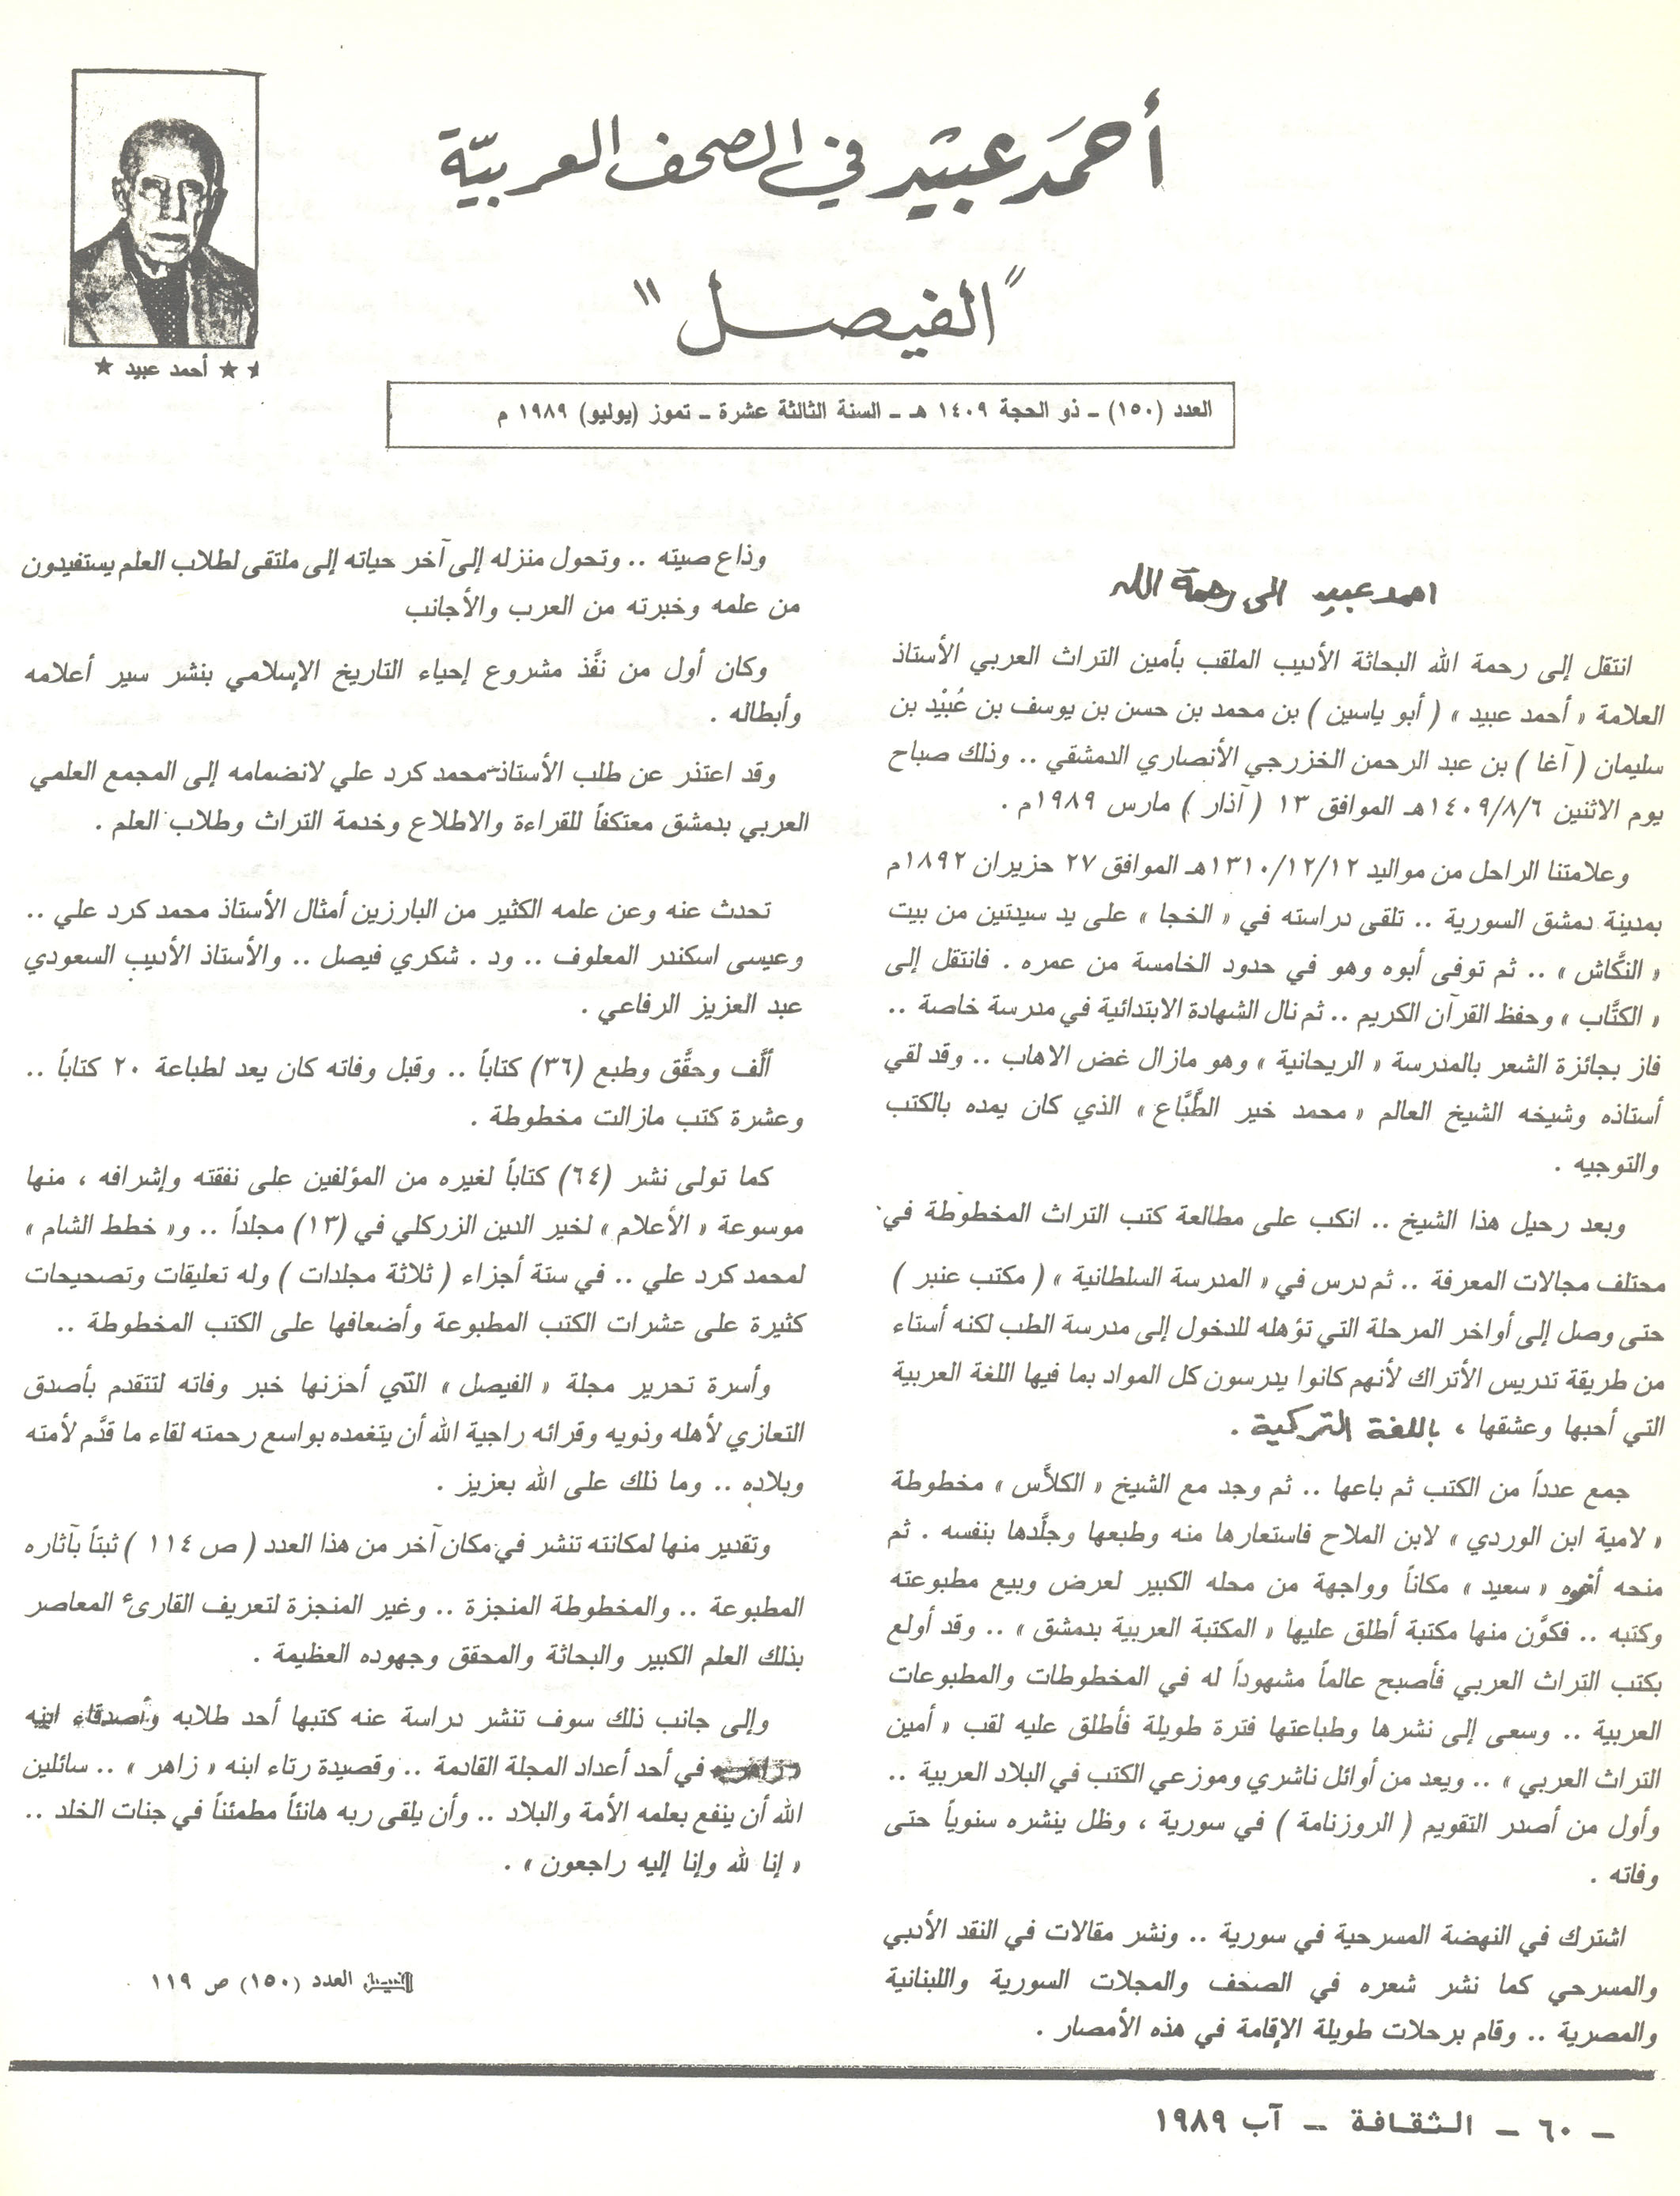 أحمَد عبيْد في الصحف العربيّة
"الفيصل"
★ أحمد عبيد ★
العدد (١٥٠) ـ ذو الحجة ١٤٠٩ هـ ـ السنة الثالثة عشرة ـ تموز (يوليو) ١٩٨٩ م
احمد عبيد الى رحمة الله
انتقل إلى رحمة الله البحاثة الأديب الملقب بأمين التراث العربي الأستاذ
العلامة « أحمد عبيد » ( أبو ياسين ) بن محمد بن حسن بن يوسف بن عُبيْد بن
سليمان ( آغا ) بن عبد الرحمن الخزرجي الأنصاري الدمشقي .. وذلك صباح
يوم الاثنين ١٤٠٩/٨/٦هـ الموافق ١٣ ( آذار ) مارس ١٩٨٩م .
وعلامتنا الراحل من مواليد ١٣١٠/١٢/١٢هـ الموافق ٢٧ حزيران ١٨٩٢م
بمدينة دمشق السورية .. تلقى دراسته في « الخجا » على يد سيدتين من بيت
« النكَّاش » .. ثم توفى أبوه وهو في حدود الخامسة من عمره . فانتقل إلى
« الكتَّاب » وحفظ القرآن الكريم .. ثم نال الشهادة الابتدائية في مدرسة خاصة ..
فاز بجائزة الشعر بالمدرسة « الريحانية » وهو مازال غض الاهاب .. وقد لقي
أستاذه وشيخه الشيخ العالم « محمد خير الطَّبَّاع » الذي كان يمده بالكتب
والتوجيه .
وبعد رحيل هذا الشيخ .. انكب على مطالعة كتب التراث المخطوطة في
محتلف مجالات المعرفة .. ثم درس في « المدرسة السلطانية » ( مكتب عنبر )
حتى وصل إلى أواخر المرحلة التي تؤهله للدخول إلى مدرسة الطب لكنه أستاء
من طريقة تدريس الأتراك لأنهم كانوا يدرسون كل المواد بما فيها اللغة العربية
التي أحبها وعشقها ، باللغة التركية .
جمع عدداً من الكتب ثم باعها .. ثم وجد مع الشيخ « الكلاَّس » مخطوطة
« لامية ابن الوردي » لابن الملاح فاستعارها منه وطبعها وجلَّدها بنفسه . ثم
منحه أخوه « سعيد » مكاناً وواجهة من محله الكبير لعرض وبيع مطبوعته
وكتبه .. فكوَّن منها مكتبة أطلق عليها « المكتبة العربية بدمشق » .. وقد أولع
بكتب التراث العربي فأصبح عالماً مشهوداً له في المخطوطات والمطبوعات
العربية .. وسعى إلى نشرها وطباعتها فترة طويلة فأطلق عليه لقب « أمين
التراث العربي » .. ويعد من أوائل ناشري وموزعي الكتب في البلاد العربية ..
وأول من أصدر التقويم ( الروزنامة ) في سورية ، وظل ينشره سنوياً حتى
وفاته .
اشترك في النهضة المسرحية في سورية .. ونشر مقالات في النقد الأدبي
والمسرحي كما نشر شعره في الصحف والمجلات السورية واللبنانية
والمصرية .. وقام برحلات طويلة الإقامة في هذه الأمصار .
وذاع صيته .. وتحول منزله إلى آخر حياته إلى ملتقى لطلاب العلم يستفيدون
من علمه وخبرته من العرب والأجانب
وكان أول من نفَّذ مشروع إحياء التاريخ الإسلامي بنشر سير أعلامه
وأبطاله .
وقد اعتذر عن طلب الأستاذ محمد كرد علي لانضمامه إلى المجمع العلمي
العربي بدمشق معتكفاً للقراءة والاطلاع وخدمة التراث وطلاب العلم .
تحدث عنه وعن علمه الكثير من البارزين أمثال الأستاذ محمد كرد علي ..
وعيسى اسكندر المعلوف .. ود . شكري فيصل .. والأستاذ الأديب السعودي
عبد العزيز الرفاعي .
ألَّف وحقَّق وطبع (٣٦) كتاباً .. وقبل وفاته كان يعد لطباعة ٢٠ كتاباً ..
وعشرة كتب مازالت مخطوطة .
كما تولى نشر (٦٤) كتاباً لغيره من المؤلفين على نفقته وإشرافه ، منها
موسوعة « الأعلام » لخير الدين الزركلي في (١٣) مجلداً .. و« خطط الشام »
لمحمد كرد علي .. في ستة أجزاء ( ثلاثة مجلدات ) وله تعليقات وتصحيحات
كثيرة على عشرات الكتب المطبوعة وأضعافها على الكتب المخطوطة ..
وأسرة تحرير مجلة « الفيصل » التي أحزنها خبر وفاته لتتقدم بأصدق
التعازي لأهله وذويه وقرائه راجية الله أن يتغمده بواسع رحمته لقاء ما قدَّم لأمته
وبلاده .. وما ذلك على الله بعزيز .
وتقدير منها لمكانته تنشر في مكان آخر من هذا العدد ( ص ١١٤ ) ثبتاً بآثاره
المطبوعة .. والمخطوطة المنجزة .. وغير المنجزة لتعريف القارىء المعاصر
بذلك العلم الكبير والبحاثة والمحقق وجهوده العظيمة .
وإلى جانب ذلك سوف تنشر دراسة عنه كتبها أحد طلابه وأصدقاء ابنه
في أحد أعداد المجلة القادمة .. وقصيدة رثاء ابنه « زاهر » .. سائلين
الله أن ينفع بعلمه الأمة والبلاد .. وأن يلقى ربه هانئاً مطمئناً في جنات الخلد ..
« إنا لله وإنا إليه راجعون » .
الفيصل العدد (١٥٠) ص ١١٩
ـ ٦٠ ـ الثقافة ـ آب ١٩٨٩